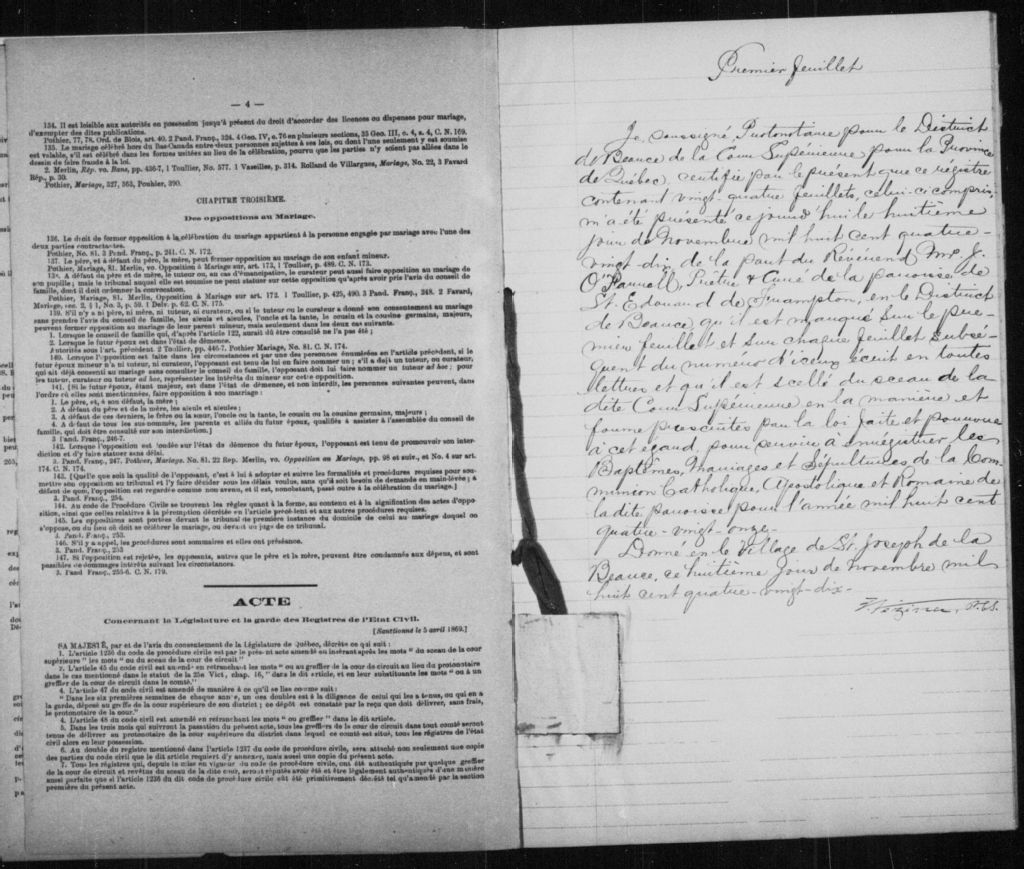 — 4 —
134. Il est loisible aux autorités en possession jusqu'à présent du droit d'accorder des licences ou dispenses pour mariage,
d'exempter des dites publications.
Pothier, 77, 78. Ord. de Blois, art. 40. 2 Pand. Franç., 324. 4 Geo. IV, c. 76 en plusieurs sections, 35 Geo. III, c. 4, s. 4, C. N. 169.
135. Le mariage célébré hors du Bas-Canada entre deux personnes sujettes à ses lois, ou dont l'une seulement y est soumise
est valable, s'il est célébré dans les formes usitées au lieu de la célébration, pourvu que les parties n'y soient pas allées dans le
dessein de faire fraude à la loi.
2. Merlin, Rép. vo. Bans, pp. 436-7, 1 Toullier, No. 577. 1 Vazeilles, p. 314. Rolland de Villargues, Mariage, No. 22, 3 Favard
Rép., p. 50.
Pothier, Mariage, 327, 363, Pouhier, 390.
CHAPITRE TROISIÈME.
Des oppositions au Mariage.
136. Le droit de former opposition à la célébration du mariage appartient à la personne engagée par mariage avec l'une des
deux parties contractantes.
Pothier, No. 81. 3 Pand. Franç., p. 241. C. N. 172.
137. Le père, et à défaut du père, la mère, peut former opposition au mariage de son enfant mineur.
Pothier, Mariage, 81. Merlin, vo. Opposition à Mariage sur art. 173, 1 Toullier, p. 489. C. N. 173.
138. A défaut de père et de mère, le tuteur ou, au cas d'émancipation, le curateur peut aussi faire opposition au mariage de
son pupille ; mais le tribunal auquel elle est soumise ne peut statuer sur cette opposition qu'après avoir pris l'avis du conseil de
famille, dont il doit ordonner la convocation.
Pothier, Mariage, 81. Merlin, Opposition à Mariage sur art. 172. 1 Toullier, p. 425, 490. 3 Pand. Franç., 248. 2 Favard,
Mariage, sec. 2, § 1, No. 3, p. 59. 1 Delv. p. 62. C. N. 175.
139. S'il n'y a ni père, ni mère, ni tuteur, ni curateur, ou si le tuteur ou le curateur a donné son consentement au mariage
sans prendre l'avis du conseil de famille, les aïeuls et aïeules, l'oncle et la tante, le cousin et la cousine germains, majeurs,
peuvent former opposition au mariage de leur parent mineur, mais seulement dans les deux cas suivants.
1. Lorsque le conseil de famille qui, d'après l'article 122, aurait dû être consulté ne l'a pas été ;
2. Lorsque le futur époux est dans l'état de démence.
Autorités sous l'art. précédent 2 Toullier, pp. 446-7. Pothier Mariage, No. 81. C. N. 174.
140. Lorsque l'opposition est faite dans les circonstances et par une des personnes énumérées en l'article précédent, si le
futur époux mineur n'a ni tuteur, ni curateur, l'opposant est tenu de lui en faire nommer un ; s'il a déjà un tuteur, ou curateur,
qui ait déjà consenti au mariage sans consulter le conseil de famille, l'opposant doit lui faire nommer un tuteur ad hoc ; pour
les tuteur, curateur ou tuteur ad hoc, représenter les intérêts du mineur sur cette opposition.
141. [Si le futur époux, étant majeur, est dans l'état de démence, et non interdit, les personnes suivantes peuvent, dans
l'ordre où elles sont mentionnées, faire opposition à son mariage :
1. Le père, et, à son défaut, la mère ;
2. A défaut du père et de la mère, les aïeuls et aïeules ;
3. A défaut de ces derniers, le frère ou la sœur, l'oncle ou la tante, le cousin ou la cousine germains, majeurs ;
4. A défaut de tous les sus-nommés, les parents et alliés du futur époux, qualifiés à assister à l'assemblée du conseil de
famille, qui doit être consulté sur son interdiction.]
3 Pand. Franç., 246-7.
142. Lorsque l'opposition est fondée sur l'état de démence du futur époux, l'opposant est tenu de promouvoir son inter-
diction et d'y faire statuer sans délai.
3. Pand. Franç., 247, Pothier, Mariage. No. 81. 22 Rep. Merlin, vo. Opposition au Mariage, pp. 98 et suiv., et No. 4 sur art.
174. C. N. 174.
143. [Quelle que soit la qualité de l'opposant, c'est à lui à adopter et suivre les formalités et procédures requises pour sou-
mettre son opposition au tribunal et l'y faire décider sous les délais voulus, sans qu'il soit besoin de demande en main-levée ; à
défaut de quoi, l'opposition est regardée comme non avenu, et il est, nonobstant, passé outre à la célébration du mariage.]
3. Pand. Franç., 254.
144. Au code de Procédure Civile se trouvent les règles quant à la forme, au contenu et à la signification des actes d'oppo-
sition, ainsi que celles relatives à la péremption décrétée en l'article précédent et aux autres procédures requises.
145. Les oppositions sont portées devant le tribunal de première instance du domicile de celui au mariage duquel on
s'oppose, ou du lieu où doit se célébrer le mariage, ou devant un juge de ce tribunal.
3. Pand. Franç., 253.
146. S'il y a appel, les procédures sont sommaires et elles ont préséance.
3. Pand. Franç., 253
147. Si l'opposition est rejetée, les opposants, autres que le père et la mère, peuvent être condamnés aux dépens, et sont
passibles de dommages intérêts suivant les circonstances.
3. Pand Franç., 255-6. C. N. 179.
ACTE
Concernant la Législature et la garde des Registres de l'Etat Civil.
[Sanctionné le 5 avril 1869.]
SA MAJESTÉ, par et de l'avis du consentement de la Législature de Québec, décrète ce qui suit :
1. L'article 1236 du code de procédure civile est par le présent acte amendé en insérant après les mots " du sceau de la cour
supérieure " les mots " ou du sceau de la cour de circuit "
2. L'article 45 du code civil est amendé en retranchant les mots " ou au greffier de la cour de circuit au lieu du protonotaire
dans le cas mentionné dans le statut de la 25e Vict, chap. 16, " dans le dit article, et en leur substituants les mots " ou à un
greffier de la cour de circuit dans le comté."
4. L'article 47 du code civil est amendé de manière à ce qu'il se lise comme suit :
" Dans les six premières semaines de chaque année, un des doubles est à la diligence de celui qui les a tenus, ou qui en a
la garde, déposé au greffe de la cour supérieure de son district ; ce dépôt est constaté par le reçu que doit délivrer, sans frais,
le protonotaire de la cour."
4. L'article 48 du code civil est amendé en retranchant les mots " ou greffier " dans le dit article.
5. Dans les trois mois qui suivront la passation du présent acte, tous les greffiers de la cour de circuit dans tout comté seront
tenus de délivrer au protonotaire de la cour supérieure du district dans lequel ce comté est situé, tous les registres de l'état
civil alors en leur possession.
6. Au double du registre mentionné dans l'article 1237 du code de procédure civile, sera attaché non seulement une copie
des parties du code civil que le dit article requiert d'y annexer, mais aussi une copie du présent acte.
7. Tous les régistres qui, depuis la mise en vigueur du code de procédure civile, ont été authentiqués par quelque greffier
de la cour de circuit et revêtus du sceau de la dite cour, seront réputés avoir été et être légalement authentiqués d'une manière
aussi parfaite que si l'article 1236 du dit code de procédure civile eût été primitivement décrété tel qu'amendé par la section
première du présent acte.
Premier feuillet
Je soussigné Protonotaire pour le District
de Beauce de la Cour Supérieure pour la Province
de Québec, certifie par le présent que ce régistre
contenant vingt-quatre feuillets, celui-ci compris,
m'a été présenté ce jourd'hui le huitième
jour de Novembre mil huit cent quatre-
vingt-dix de la part du Révérend Mre J.
O'Farrell, Prêtre & Curé de la paroisse de
St. Edouard de Frampton, en le District
de Beauce, qu'il est marqué sur le pre-
mier feuillet et sur chaque feuillet subsé-
quent du numéro d'iceux écrit en toutes
lettres et qu'il est scellé du sceau de la
dite Cour Supérieure en la manière et
forme prescrites par la loi faite et pourvue
à cet égard, pour servir à enregistrer les
Baptêmes, Mariages et Sépultures de la Com-
munion Catholique, Apostolique et Romaine de
la dite paroisse pour l'année mil huit cent
quatre-vingt-onze.
Donné en le Village de St. Joseph de la
Beauce, ce huitième jour de Novembre mil
huit cent quatre-vingt-dix.
P.C.S.